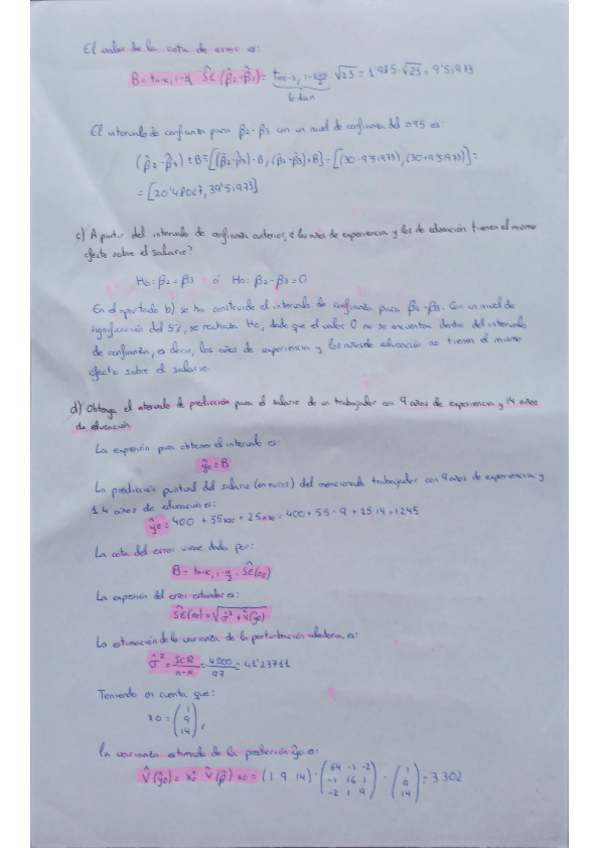 El valor de la cota de error es:
B = tn-k, 1-α/2 · ŜE(β̂2-β̂3) = √23 = 1'985 √23 = 9'51973
6 dan
El intervalo de confianza para β2-β3 con un nivel de confianza del 0'95 es:
(β̂2-β̂3) ± B = [(β̂2-β̂3)-B, (β̂2-β̂3)+B] = [(30-9'51973), (30+9'51973)] =
= [20'48027, 39'51973]
c) A partir del intervalo de confianza anterior, ¿ los años de experiencia y los de educación tienen el mismo
efecto sobre el salario?
H0: β2 = β3 ó H0: β2-β3 = 0
En el apartado b) se ha construido el intervalo de confianza para β2-β3. Con un nivel de
significación del 5%, se rechaza H0, dado que el valor 0 no se encuentra dentro del intervalo
de confianza, es decir, los años de experiencia y los años de educación no tienen el mismo
efecto sobre el salario.
d) Obtenga el intervalo de predicción para el salario de un trabajador con 9 años de experiencia y 14 años
de educación
La expresión para obtener el intervalo es:
ŷ0 ± B
La predicción puntual del salario (en euros) del mencionado trabajador con 9 años de experiencia y
14 años de educación es:
ŷ0 = 400 + 55x20 + 25x30 = 400 + 55 · 9 + 25 · 14 = 1245
La cota del error viene dada por:
B = tn-k, 1-α/2 · ŜE(e0)
La expresión del error estándar es:
ŜE(e0) = √σ̂² + V̂(ŷ0)
La estimación de la varianza de la perturbación aleatoria es:
σ̂² = SCR/n-k = 4000/97 = 41'23711
Teniendo en cuenta que:
x0 = (1 9 14),
la varianza estimada de la predicción ŷ0 es:
V̂(ŷ0) = x0' V̂(β̂) x0 = (1 9 14) · (64 -1 -2 -1 16 1 -2 1 9) · (1 9 14) = 3302